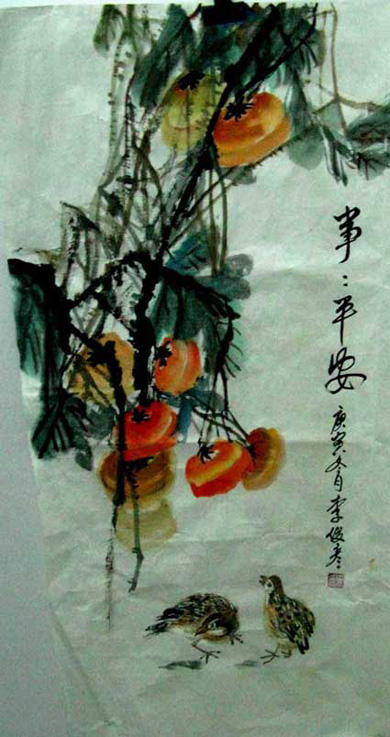 事:平安
庚寅冬月李俊彦